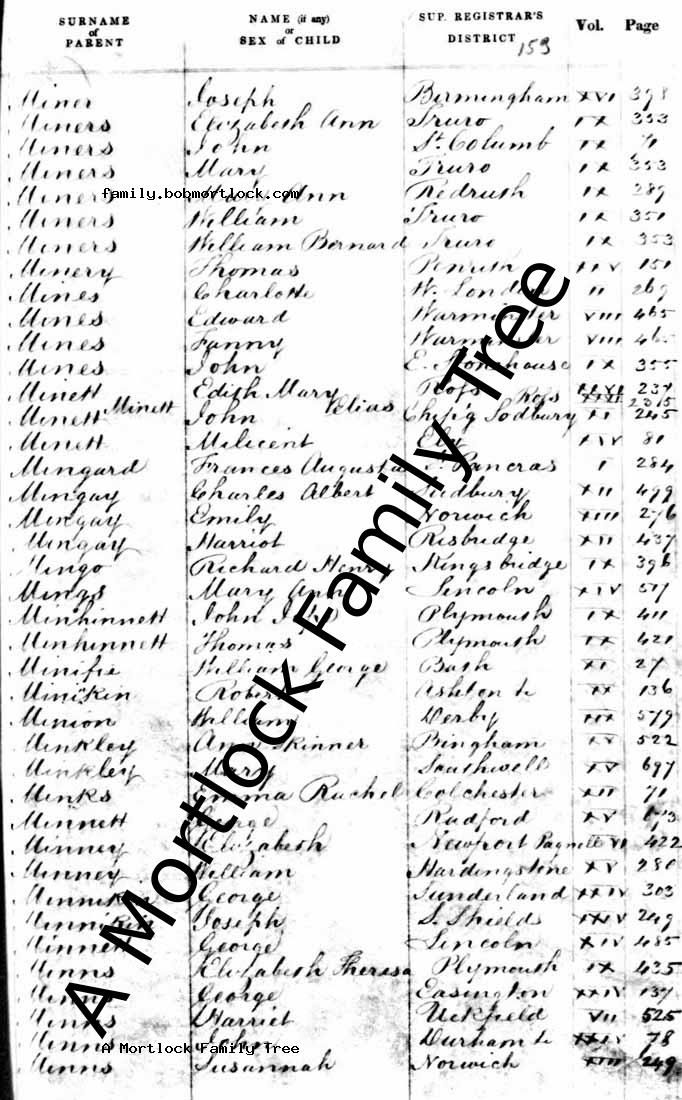 SURNAME of PARENT NAME (if any) or SEX of CHILD SUP. REGISTRAR'S DISTRICT 159 Vol. Page
Miner Joseph Birmingham XVI 398
Miners Elizabeth Ann Truro IX 353
Miners John St. Columb IX 71
Miners Mary Truro IX 353
Miners Ann Redruth IX 289
family.bobmortlock.com
Miners William Truro IX 351
Miners William Bernard Truro IX 353
Minery Thomas Penrith XXV 151
Mines Charlotte W. London II 269
Mines Edward Warminster VIII 465
Mines Fanny Warminster VIII 465
Mines John E. Stonehouse IX 355
Minett Edith Mary Ross XXVI 237
Minett Elias Ross XXVI
Minett John Chip'g Sodbury XI 245
Minett Milicent Ely XIV 81
Mingard Frances Augusta Pancras I 284
Mingay Charles Albert Sudbury XII 499
Mingay Emily Norwich XIII 276
Mingay Harriot Risbridge XII 437
Mingo Richard Henry Kingsbridge IX 396
Mings Mary Ann Lincoln XIV 517
Minhinnett John Plymouth IX 411
Minhinnett Thomas Plymouth IX 421
Minifie William George Bath XI 27
Minikin Robert Ashton XX 136
Minion William Derby XIX 579
Minkley Ann Skinner Bingham XV 522
Minkley Mary Southwell XV 697
Minks Emma Rachel Colchester XII 71
Minnett George Radford XV
Minney Elizabeth Newport Pagnell VI 422
Minney William Hardingstone XV 280
Minnikin George Sunderland XXIV 303
Minnikin Joseph S. Shields XXIV 249
Minnett George Lincoln XIV 485
Minns Elizabeth Theresa Plymouth IX 435
Minns George Easington XXIV 137
Minns Harriet Uckfield VII 525
Minns Durham XXIV 78
Minns Susannah Norwich XIII 249
A Mortlock Family Tree
A Mortlock Family Tree